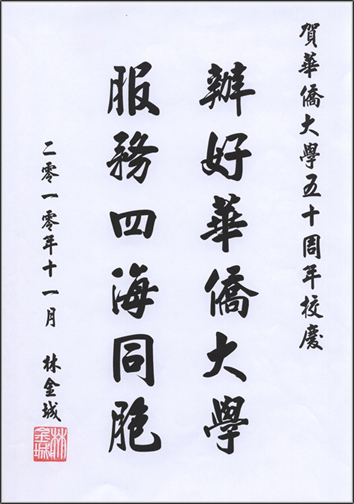 賀華僑大學五十周年校慶
辦好華僑大學
服務四海同胞
二零一零年十一月 林金城
林金城